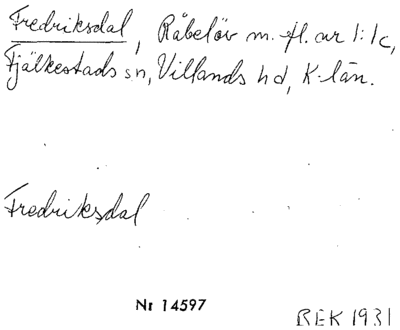 Fredriksdal, Råbelöv m. fl. nr 1:1c,
Fjälkestads sn, Villands hd, K-län.
Fredriksdal
Nr 14597
BEK 1931